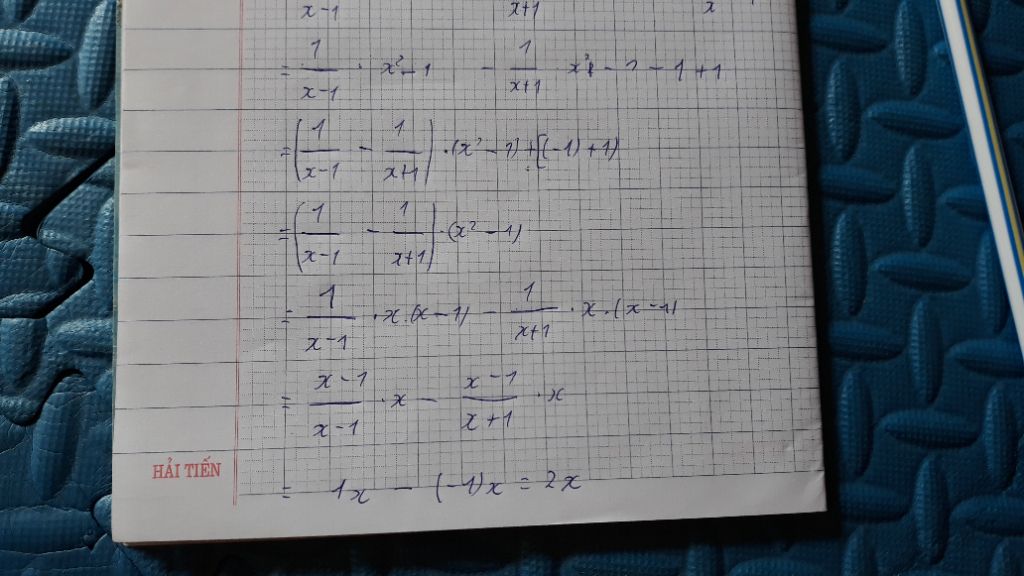 x-1 x+1 x
= 1/(x-1) · x²-1 - 1/(x+1) · x² - 1 - 1 + 1
= (1/(x-1) - 1/(x+1)) · (x² - 1) + [(-1) + 1)
= (1/(x-1) - 1/(x+1)) · (x² - 1)
= 1/(x-1) · x (x-1) - 1/(x+1) · x · (x-1)
= (x-1)/(x-1) · x - (x-1)/(x+1) · x
HẢI TIẾN
= 1x - (-1)x = 2x